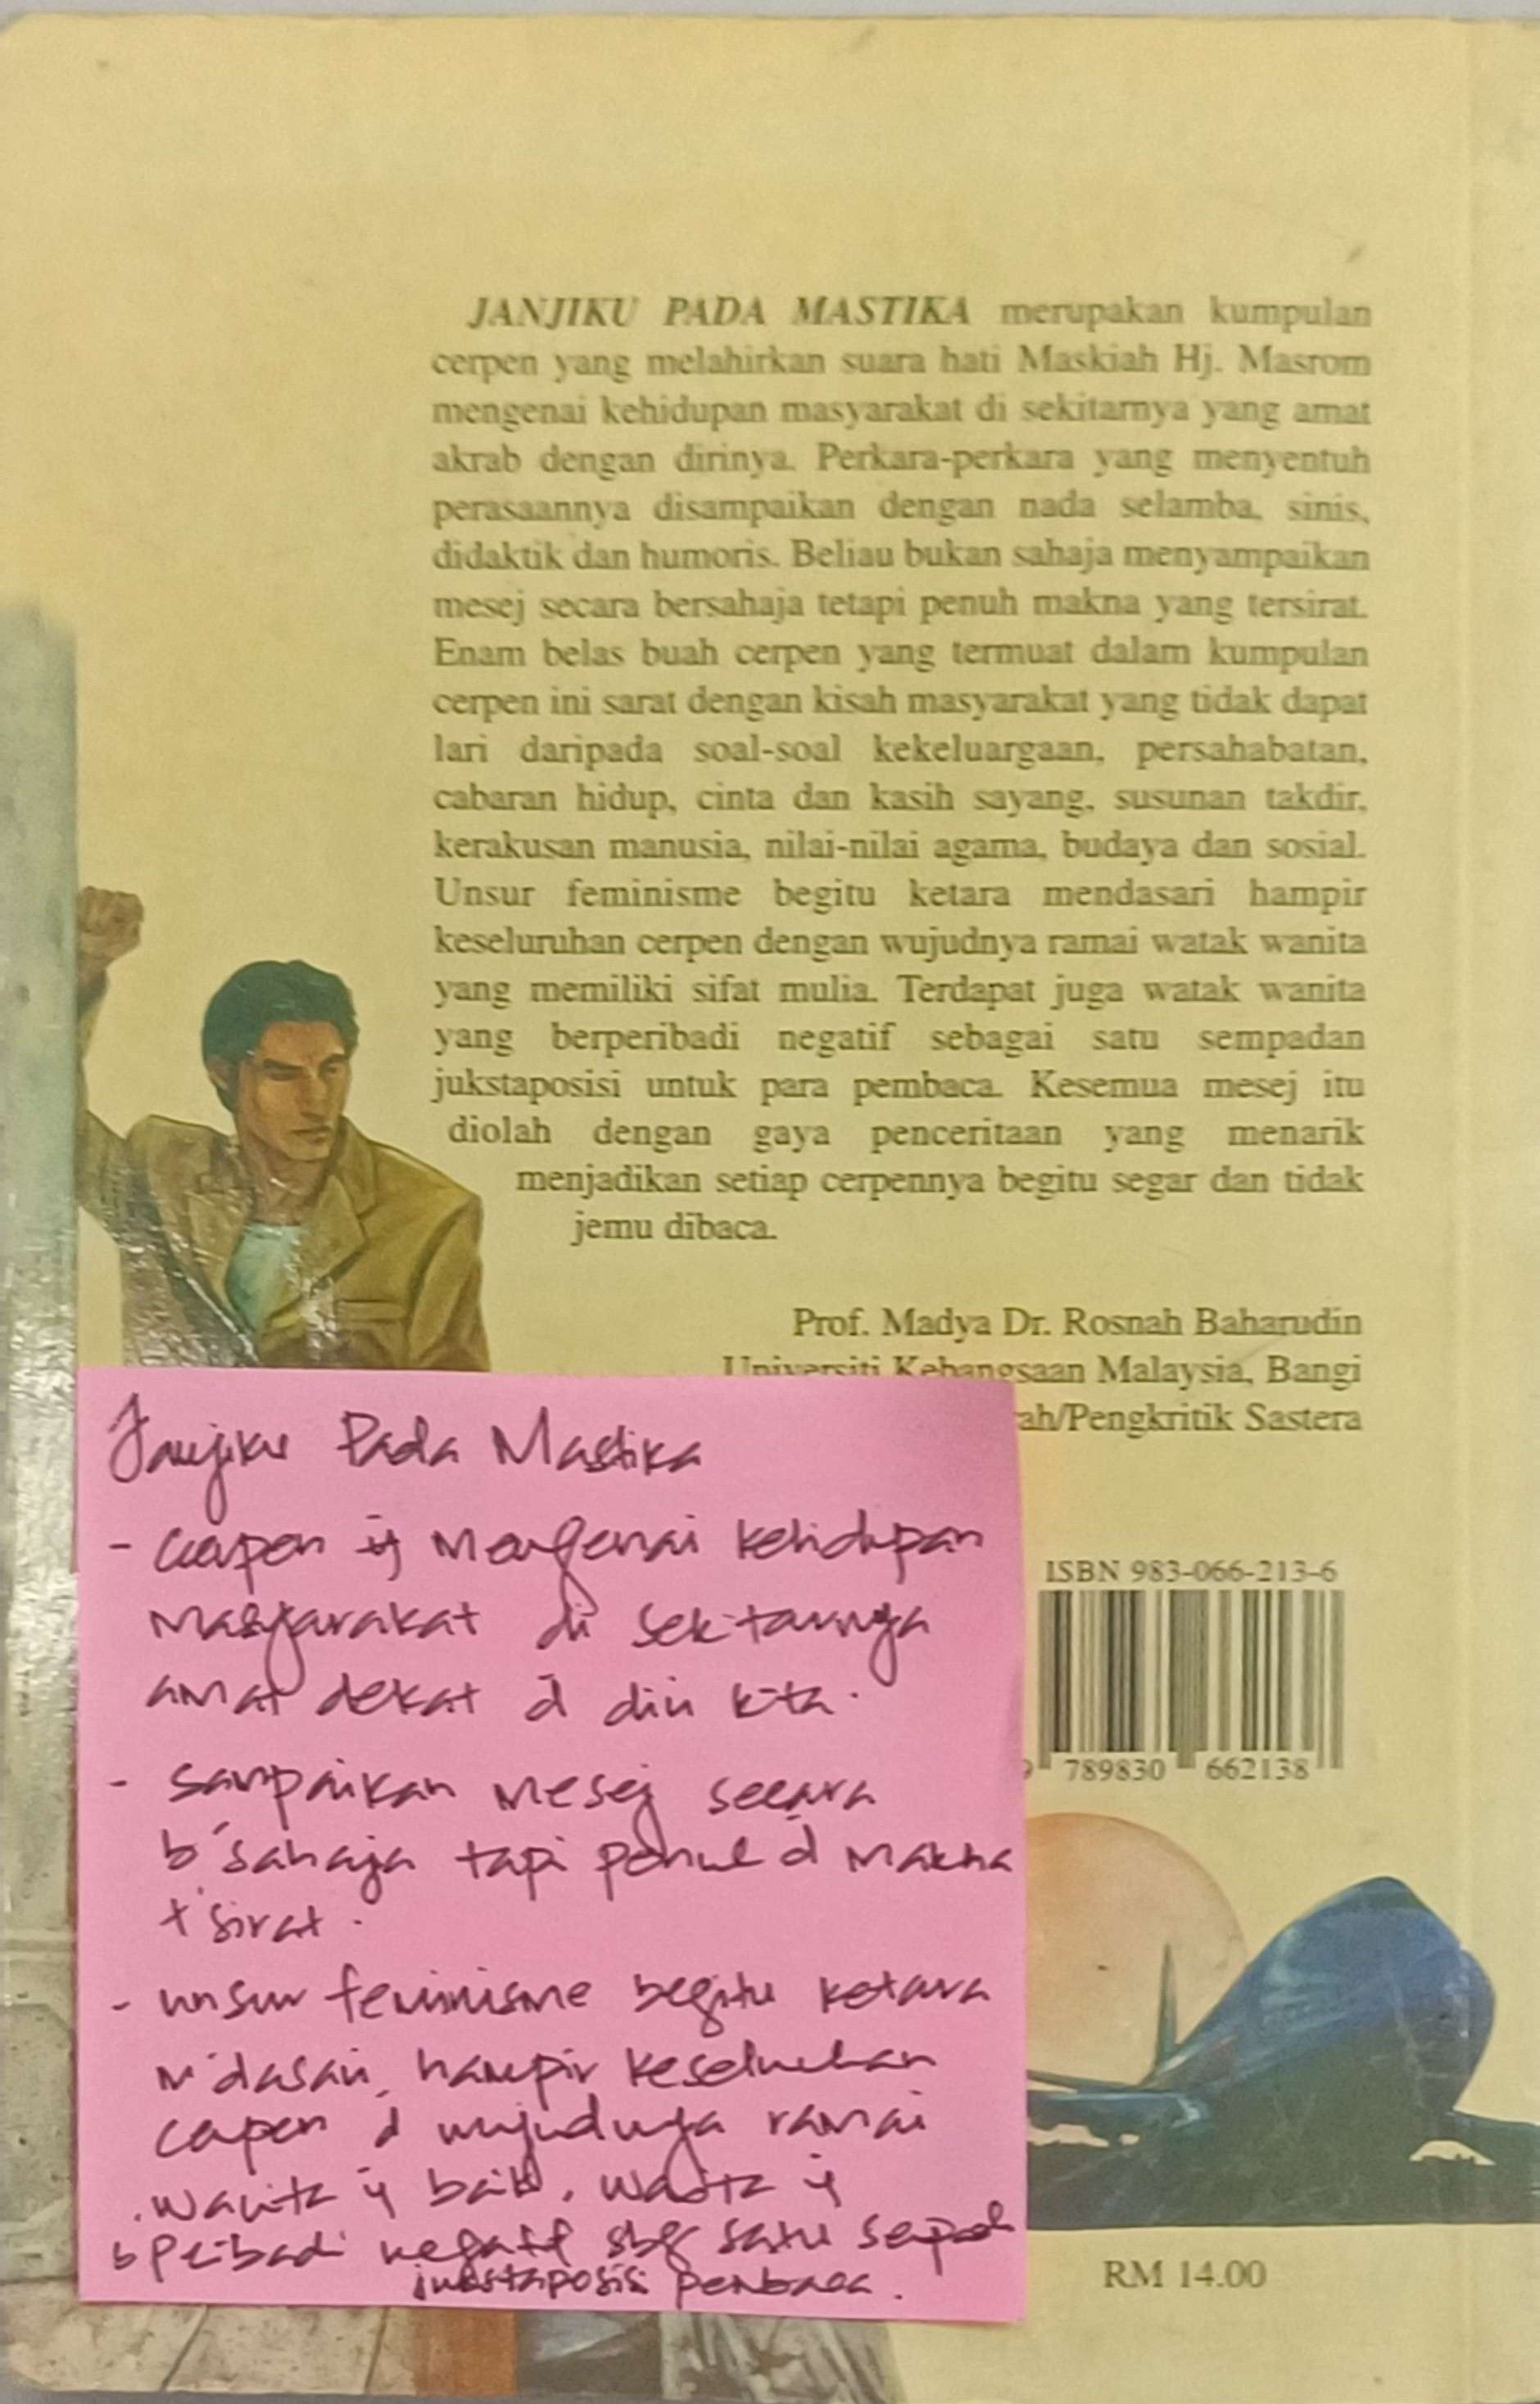 JANJIKU PADA MASTIKA merupakan kumpulan
cerpen yang melahirkan suara hati Maskiah Hj. Masrom
mengenai kehidupan masyarakat di sekitarnya yang amat
akrab dengan dirinya. Perkara-perkara yang menyentuh
perasaannya disampaikan dengan nada selamba, sinis,
didaktik dan humoris. Beliau bukan sahaja menyampaikan
mesej secara bersahaja tetapi penuh makna yang tersirat.
Enam belas buah cerpen yang termuat dalam kumpulan
cerpen ini sarat dengan kisah masyarakat yang tidak dapat
lari daripada soal-soal kekeluargaan, persahabatan,
cabaran hidup, cinta dan kasih sayang, susunan takdir,
kerakusan manusia, nilai-nilai agama, budaya dan sosial.
Unsur feminisme begitu ketara mendasari hampir
keseluruhan cerpen dengan wujudnya ramai watak wanita
yang memiliki sifat mulia. Terdapat juga watak wanita
yang berperibadi negatif sebagai satu sempadan
jukstaposisi untuk para pembaca. Kesemua mesej itu
diolah dengan gaya penceritaan yang menarik
menjadikan setiap cerpennya begitu segar dan tidak
jemu dibaca.
Prof. Madya Dr. Rosnah Baharudin
Universiti Kebangsaan Malaysia, Bangi
rah/Pengkritik Sastera
Janjiku Pada Mastika
- cerpen yg mengenai kehidupan
masyarakat di sekitarnya
amat dekat d diri kita.
- sampaikan mesej secara
b'sahaja tapi penuh d makna
t'sirat.
- unsur feminisme begitu ketara
m'dasari hampir keseluruhan
cerpen d wujudnya ramai
wanita y baik, wanita y
b'peribadi negatif sbg satu
jukstaposisi pembaca.
ISBN 983-066-213-6
9 789830 662138
RM 14.00